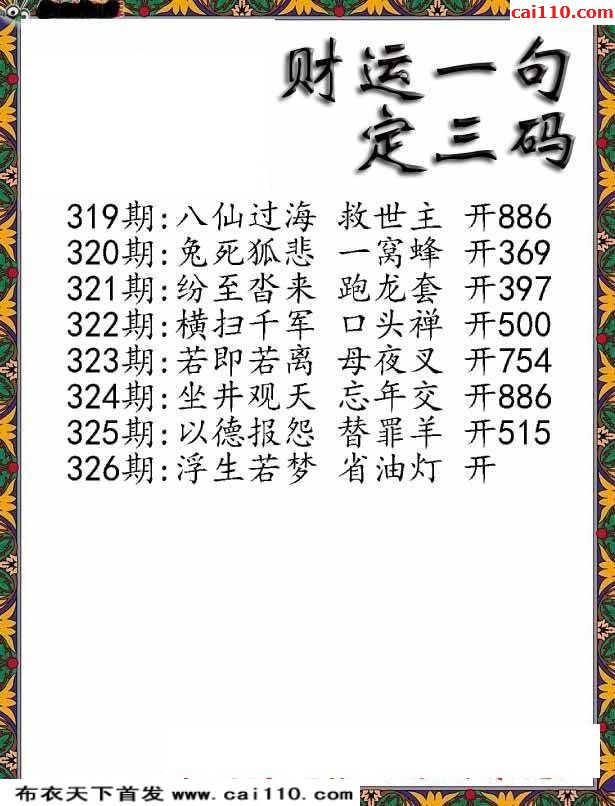 cai110.com
财运一句
定三码
319期:八仙过海 救世主 开886
320期:兔死狐悲 一窝蜂 开369
321期:纷至沓来 跑龙套 开397
322期:横扫千军 口头禅 开500
323期:若即若离 母夜叉 开754
324期:坐井观天 忘年交 开886
325期:以德报怨 替罪羊 开515
326期:浮生若梦 省油灯 开
布衣天下首发 www.cai110.com